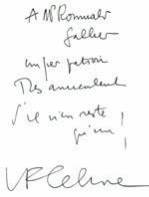 A Mr Romuald
Gallier
un per patron
Très amicalement
S'il n'en reste
qu'un !
LF Celine